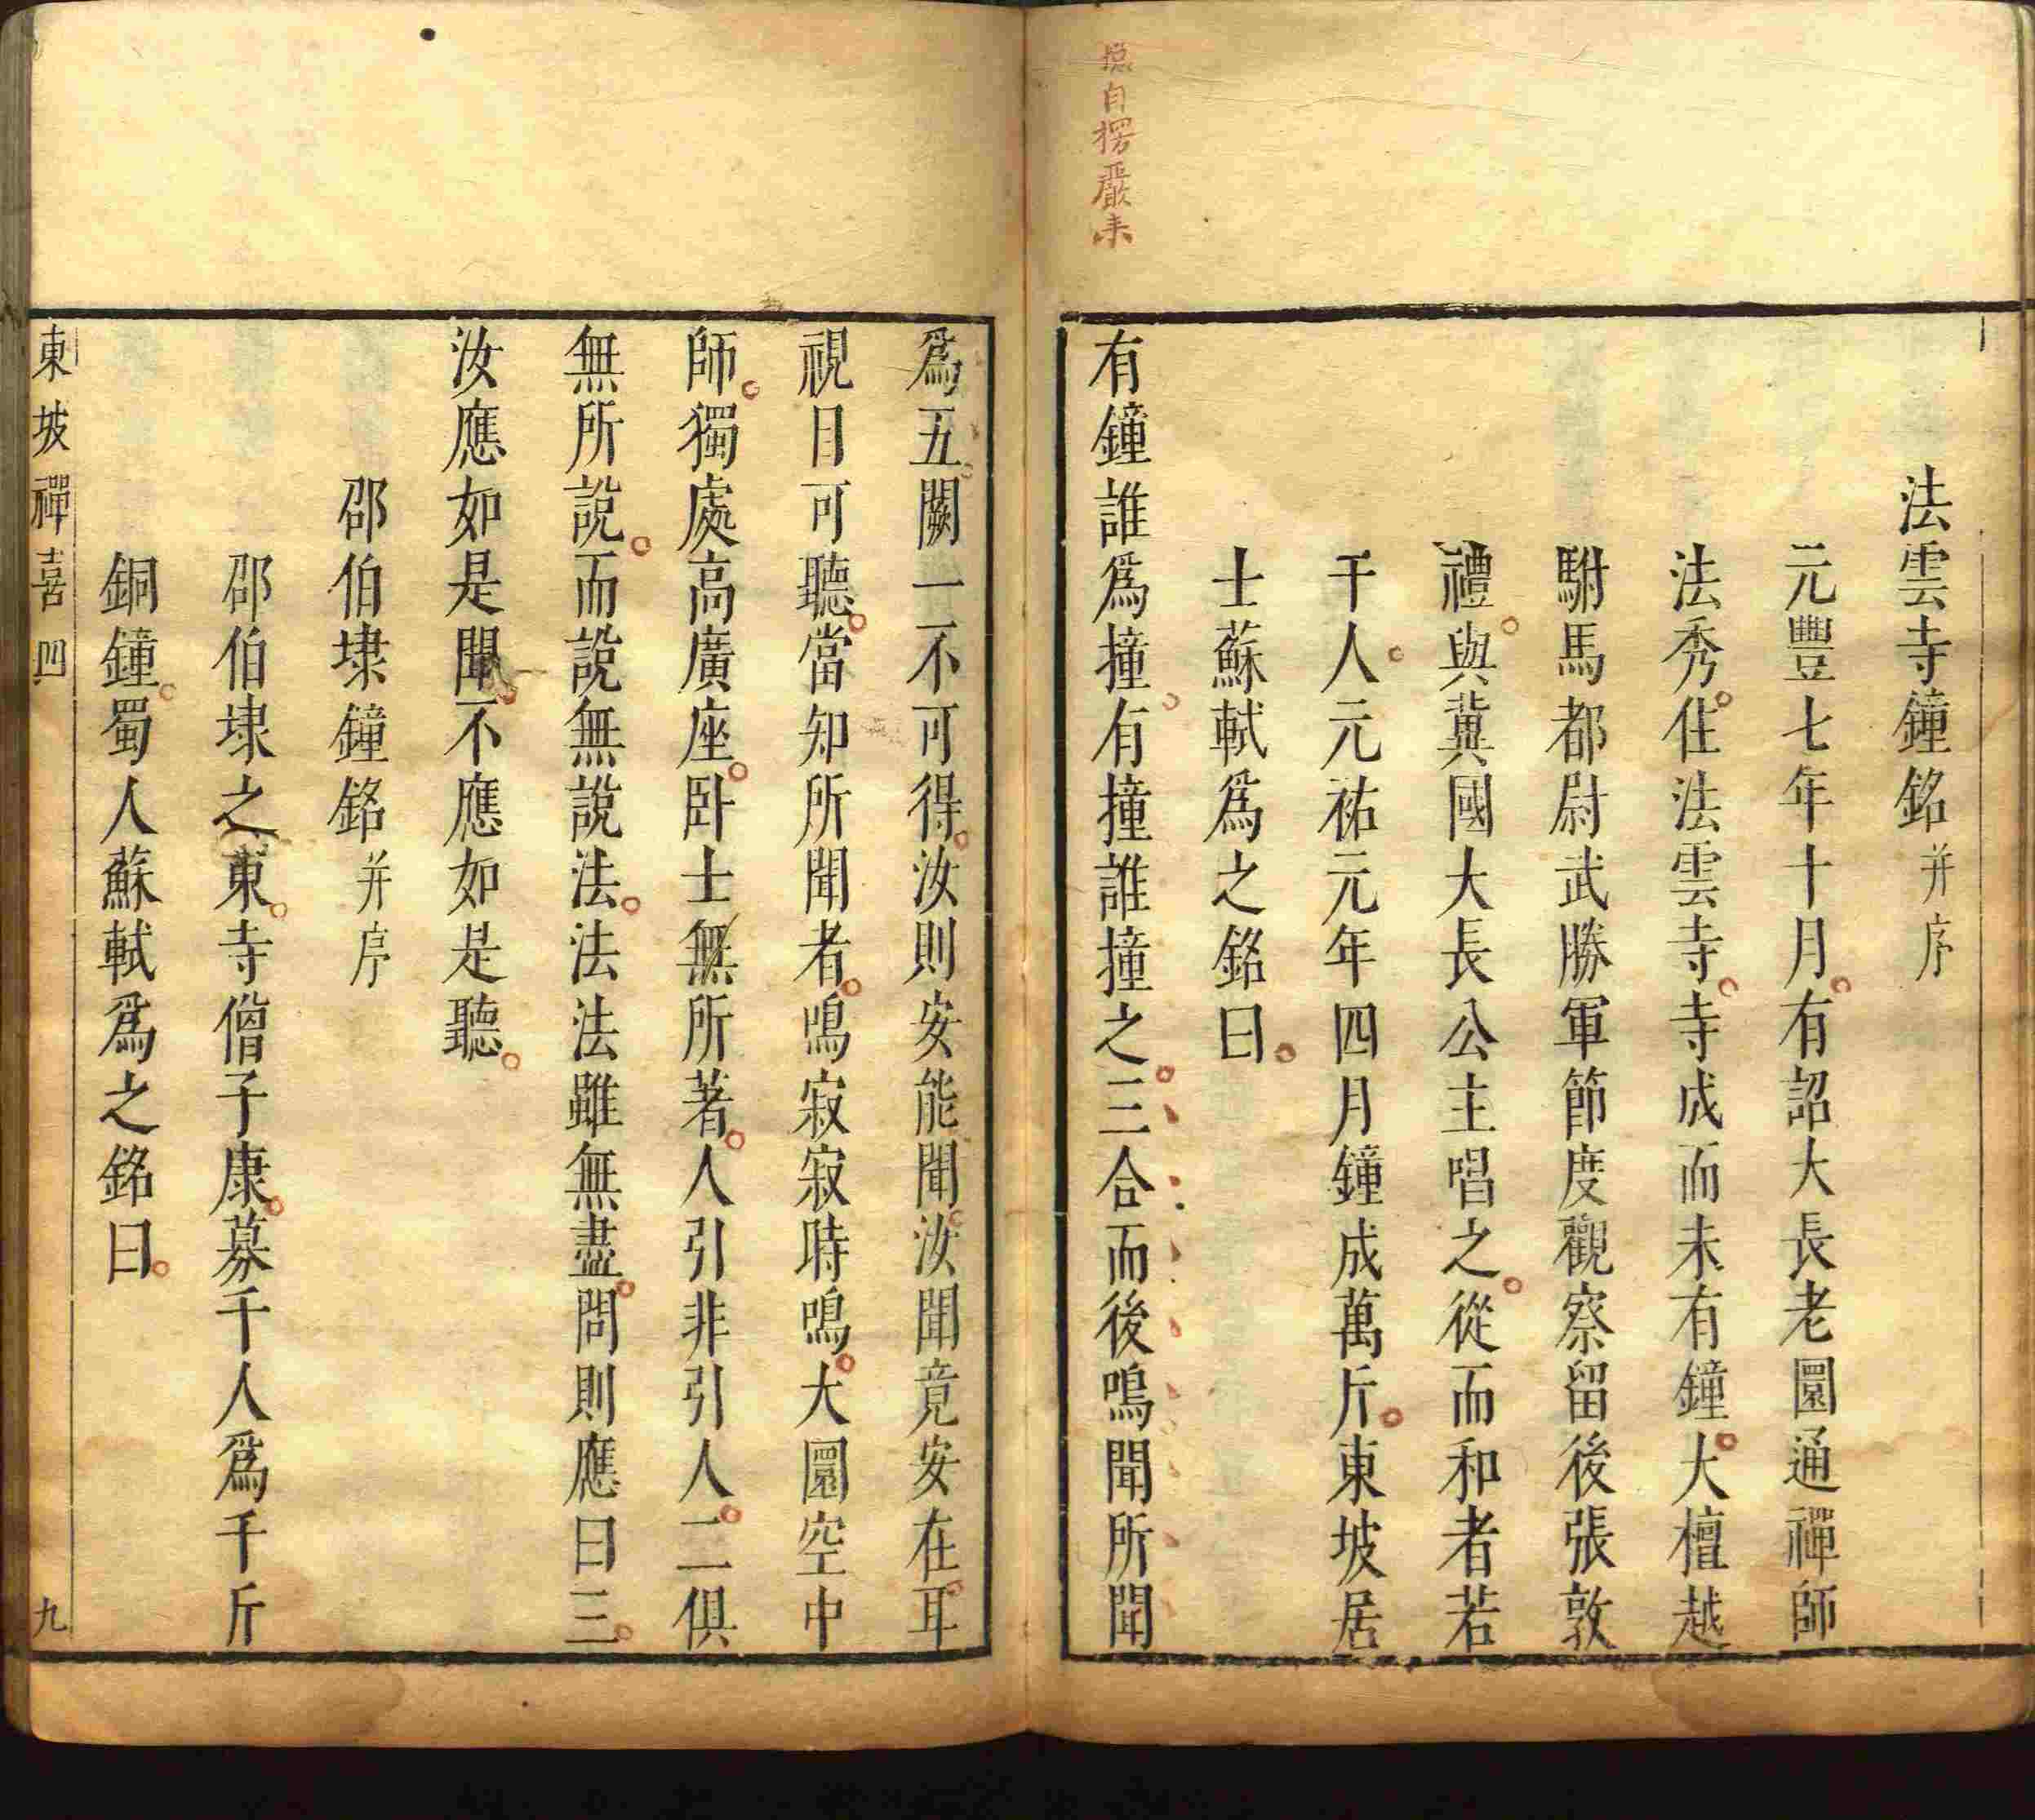 自楞嚴來
法雲寺鐘銘并序
元豐七年十月有詔大長老圓通禪師
法秀住法雲寺寺成而未有鐘大檀越
駙馬都尉武勝軍節度觀察留後張敦
禮與冀國大長公主唱之從而和者若
干人元祐元年四月鐘成萬斤東坡居
士蘇軾爲之銘曰
有鐘誰爲撞有撞誰撞之三合而後鳴聞所聞
爲五闕一不可得汝則安能聞汝聞竟安在耳
視目可聽當知所聞者鳴寂寂時鳴大圓空中
師獨處高廣座臥士無所著人引非引人二俱
無所說而說無說法法法法雖無盡問則應曰三
汝應如是聞不應如是聽
邵伯埭鐘銘并序
邵伯埭之東寺僧子康募千人爲千斤
銅鐘蜀人蘇軾爲之銘曰
東坡禪喜四 九